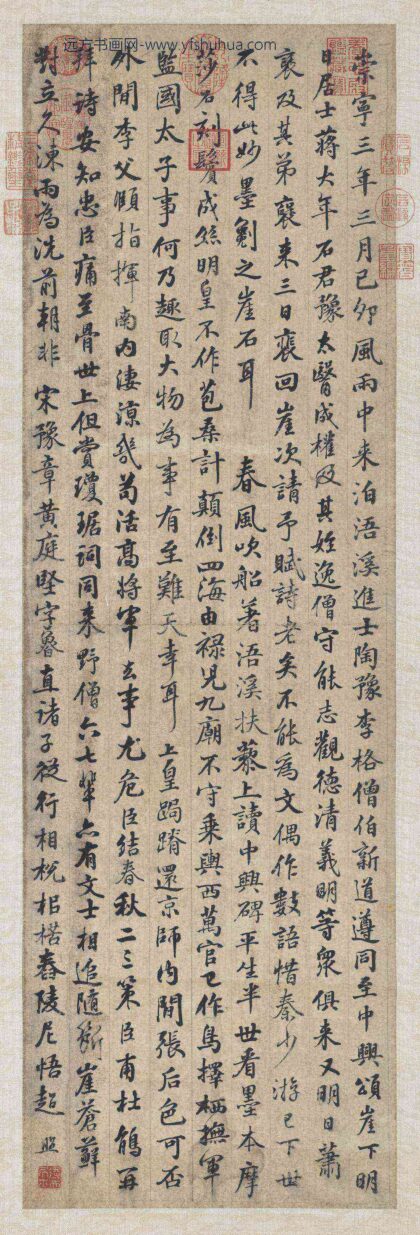 远方书画网-www.yfshuhua.com
崇寧三年三月己卯風雨中来泊浯溪進士陶豫李格僧伯新道遵同至中興頌崖下明
日居士蔣大年石君豫太醫成權及其姪逸僧守能志觀德清義明等衆俱来又明日蕭
褒及其弟褎来三日裵回崖次請予賦詩老矣不能為文偶作數語惜秦少游已下世
不得此妙墨劖之崖石耳 春風吹船著浯溪扶藜上讀中興碑平生半世看墨本摩
莎石刻鬢成絲明皇不作苞桑計顛倒四海由祿兒九廟不守乘輿西萬官已作鳥擇栖撫軍
監國太子事何乃趣取大物為事有至難天幸耳上皇跼蹐還京師内間張后色可否
外間李父頤指揮南内凄凉幾苟活高將軍去事尤危臣結春秋二三策臣甫杜鵑再
拜詩安知忠臣痛至骨世上但賞瓊琚詞同来野僧六七輩亦有文士相追随斷崖蒼蘚
對立久凍雨為洗前朝非 宋豫章黄庭堅字魯直諸子從行相梲柖楛舂陵尼悟超 照